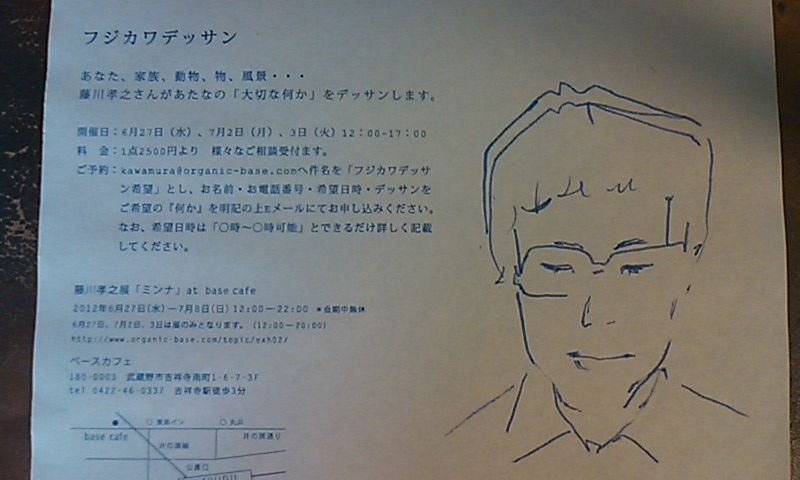 フジカワデッサン
あなた、家族、動物、物、風景・・・
藤川孝之さんがあたなの「大切な何か」をデッサンします。
開催日：6月27日（水）、7月2日（月）、3日（火）12:00-17:00
料　金：1点2500円より　様々なご相談受付ます。
ご予約：kawamura@organic-base.comへ件名を「フジカワデッサ
ン希望」とし、お名前・お電話番号・希望日時・デッサンを
ご希望の『何か』を明記の上Eメールにてお申し込みください。
なお、希望日時は「〇時～〇時可能」とできるだけ詳しく記載
してください。
藤川孝之展「ミンナ」at base cafe
2012年6月27日(水)―7月8日(日)12:00―22:00 ＊会期中無休
6月27日、7月2日、3日は展のみとなります。（12:00―20:00）
http://www.organic-base.com/topic/exh02/
ベースカフェ
180-0003　武蔵野市吉祥寺南町1-6-7-3F
tel 0422-46-0337　吉祥寺駅徒歩3分
〇東急イン　〇丸井
base cafe　井の頭通り
井の頭線
公園口